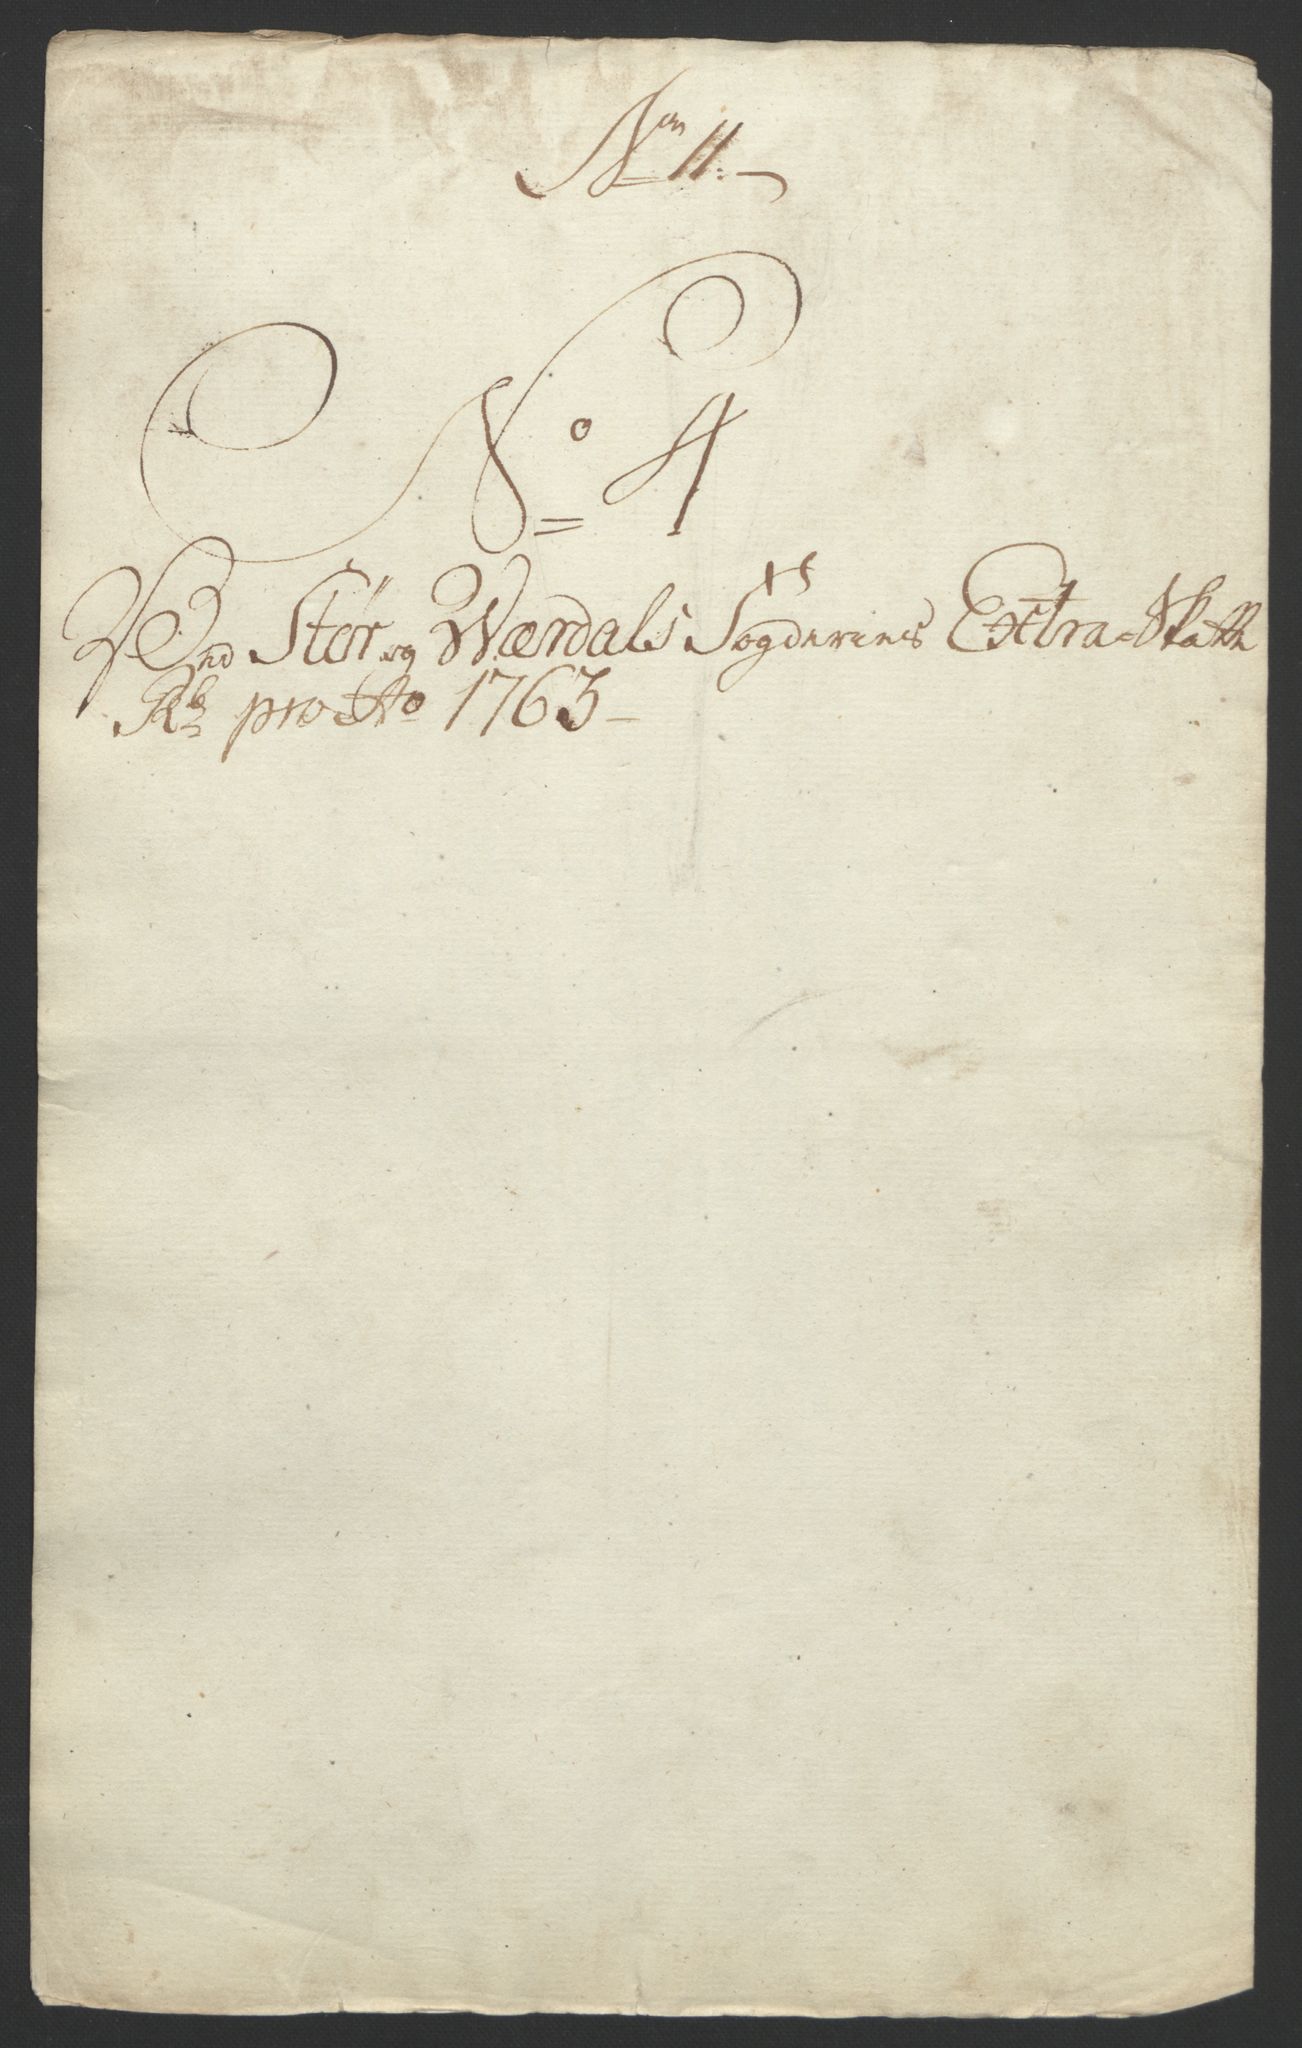 No 11.
No 4
Ved Stør og Værdals Fogderies Extra-Skatte
Rb pro Ao 1763